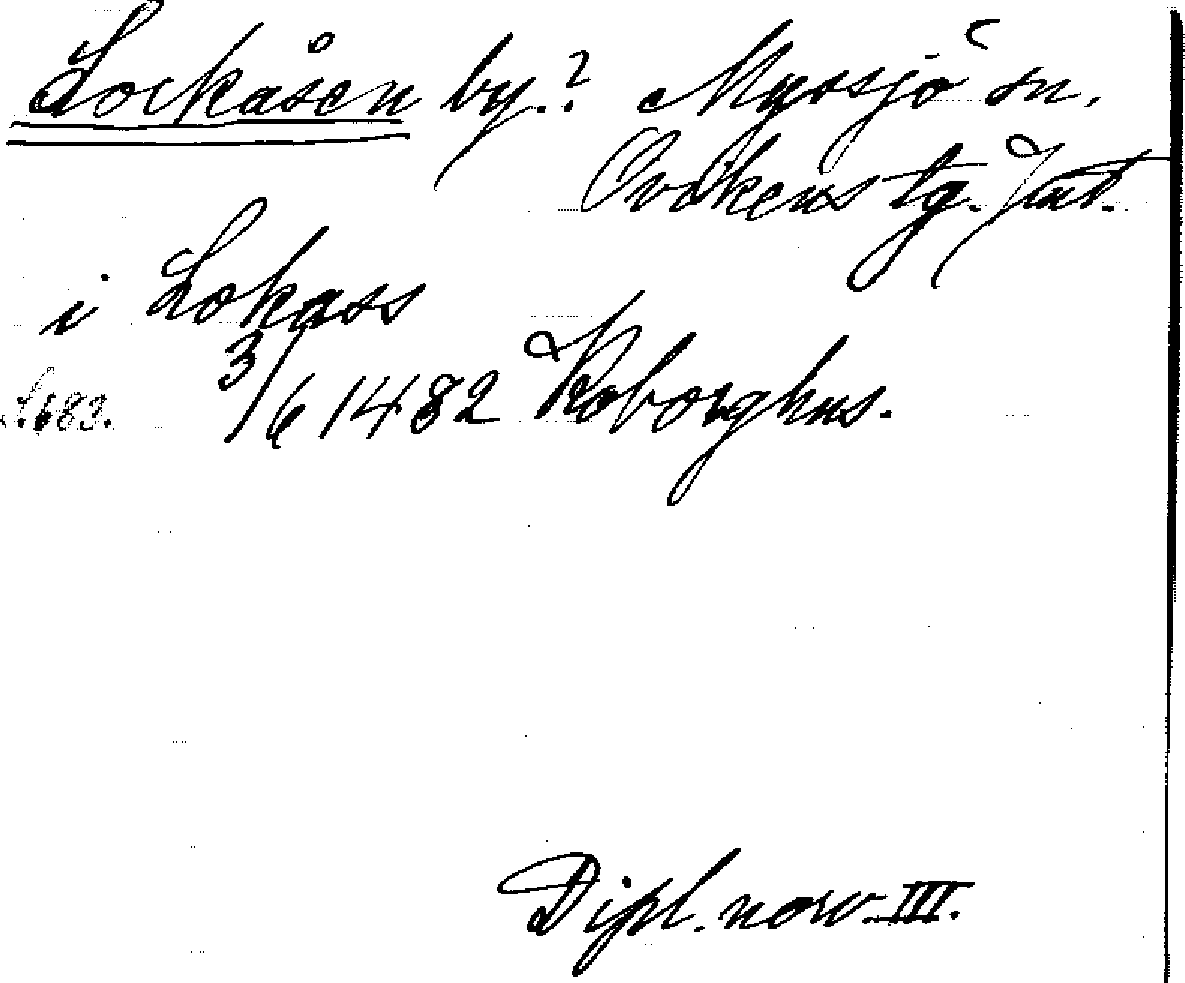 Lockåsen by.? Myssjö sn.
Ovikens tg. Jmt.
i Lokass
s. 683. 3/6 1482 Koborghus.
Dipl. norv. III.